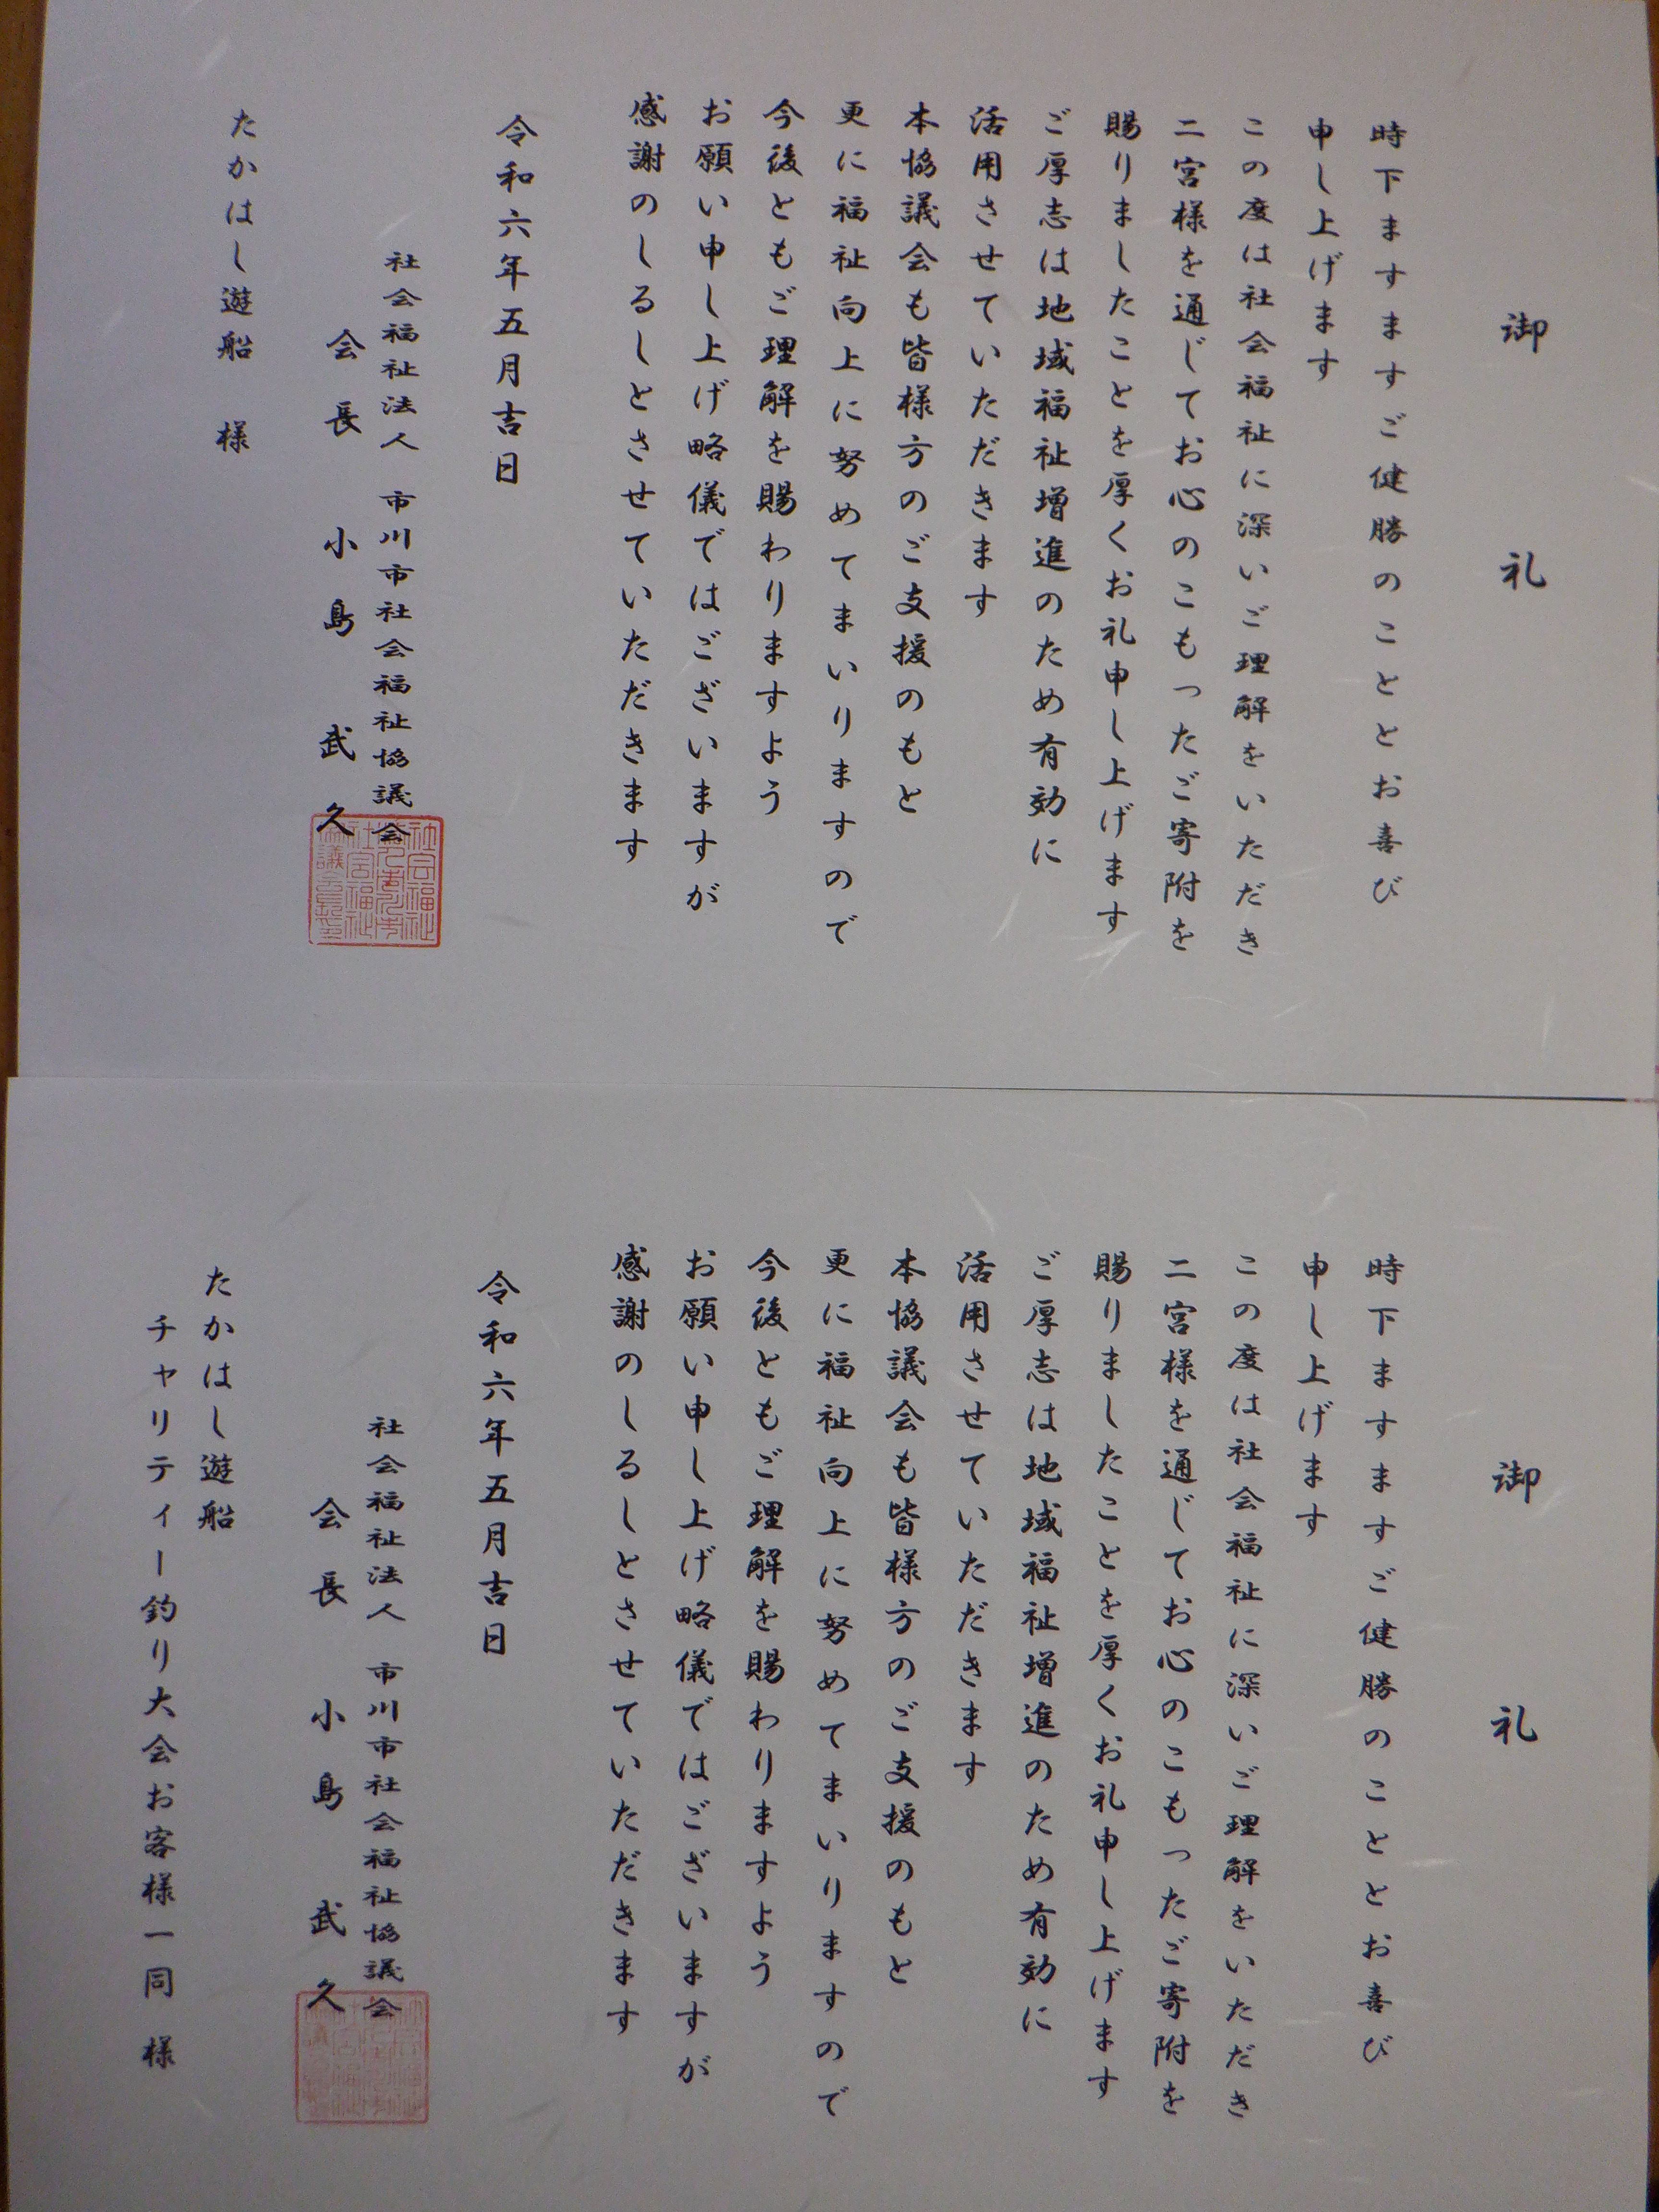 御礼
時下ますますご健勝のこととお喜び
申し上げます
この度は社会福祉に深いご理解をいただき
二宮様を通じてお心のこもったご寄附を
賜りましたことを厚くお礼申し上げます
ご厚志は地域福祉増進のため有効に
活用させていただきます
本協議会も皆様方のご支援のもと
更に福祉向上に努めてまいりますので
今後ともご理解を賜わりますよう
お願い申し上げ略儀ではございますが
感謝のしるしとさせていただきます
令和六年五月吉日
社会福祉法人 市川市社会福祉協議会
会長 小島 武久
たかはし遊船 様
御礼
時下ますますご健勝のこととお喜び
申し上げます
この度は社会福祉に深いご理解をいただき
二宮様を通じてお心のこもったご寄附を
賜りましたことを厚くお礼申し上げます
ご厚志は地域福祉増進のため有効に
活用させていただきます
本協議会も皆様方のご支援のもと
更に福祉向上に努めてまいりますので
今後ともご理解を賜わりますよう
お願い申し上げ略儀ではございますが
感謝のしるしとさせていただきます
令和六年五月吉日
社会福祉法人 市川市社会福祉協議会
会長 小島 武久
たかはし遊船
チャリティー釣り大会お客様一同 様